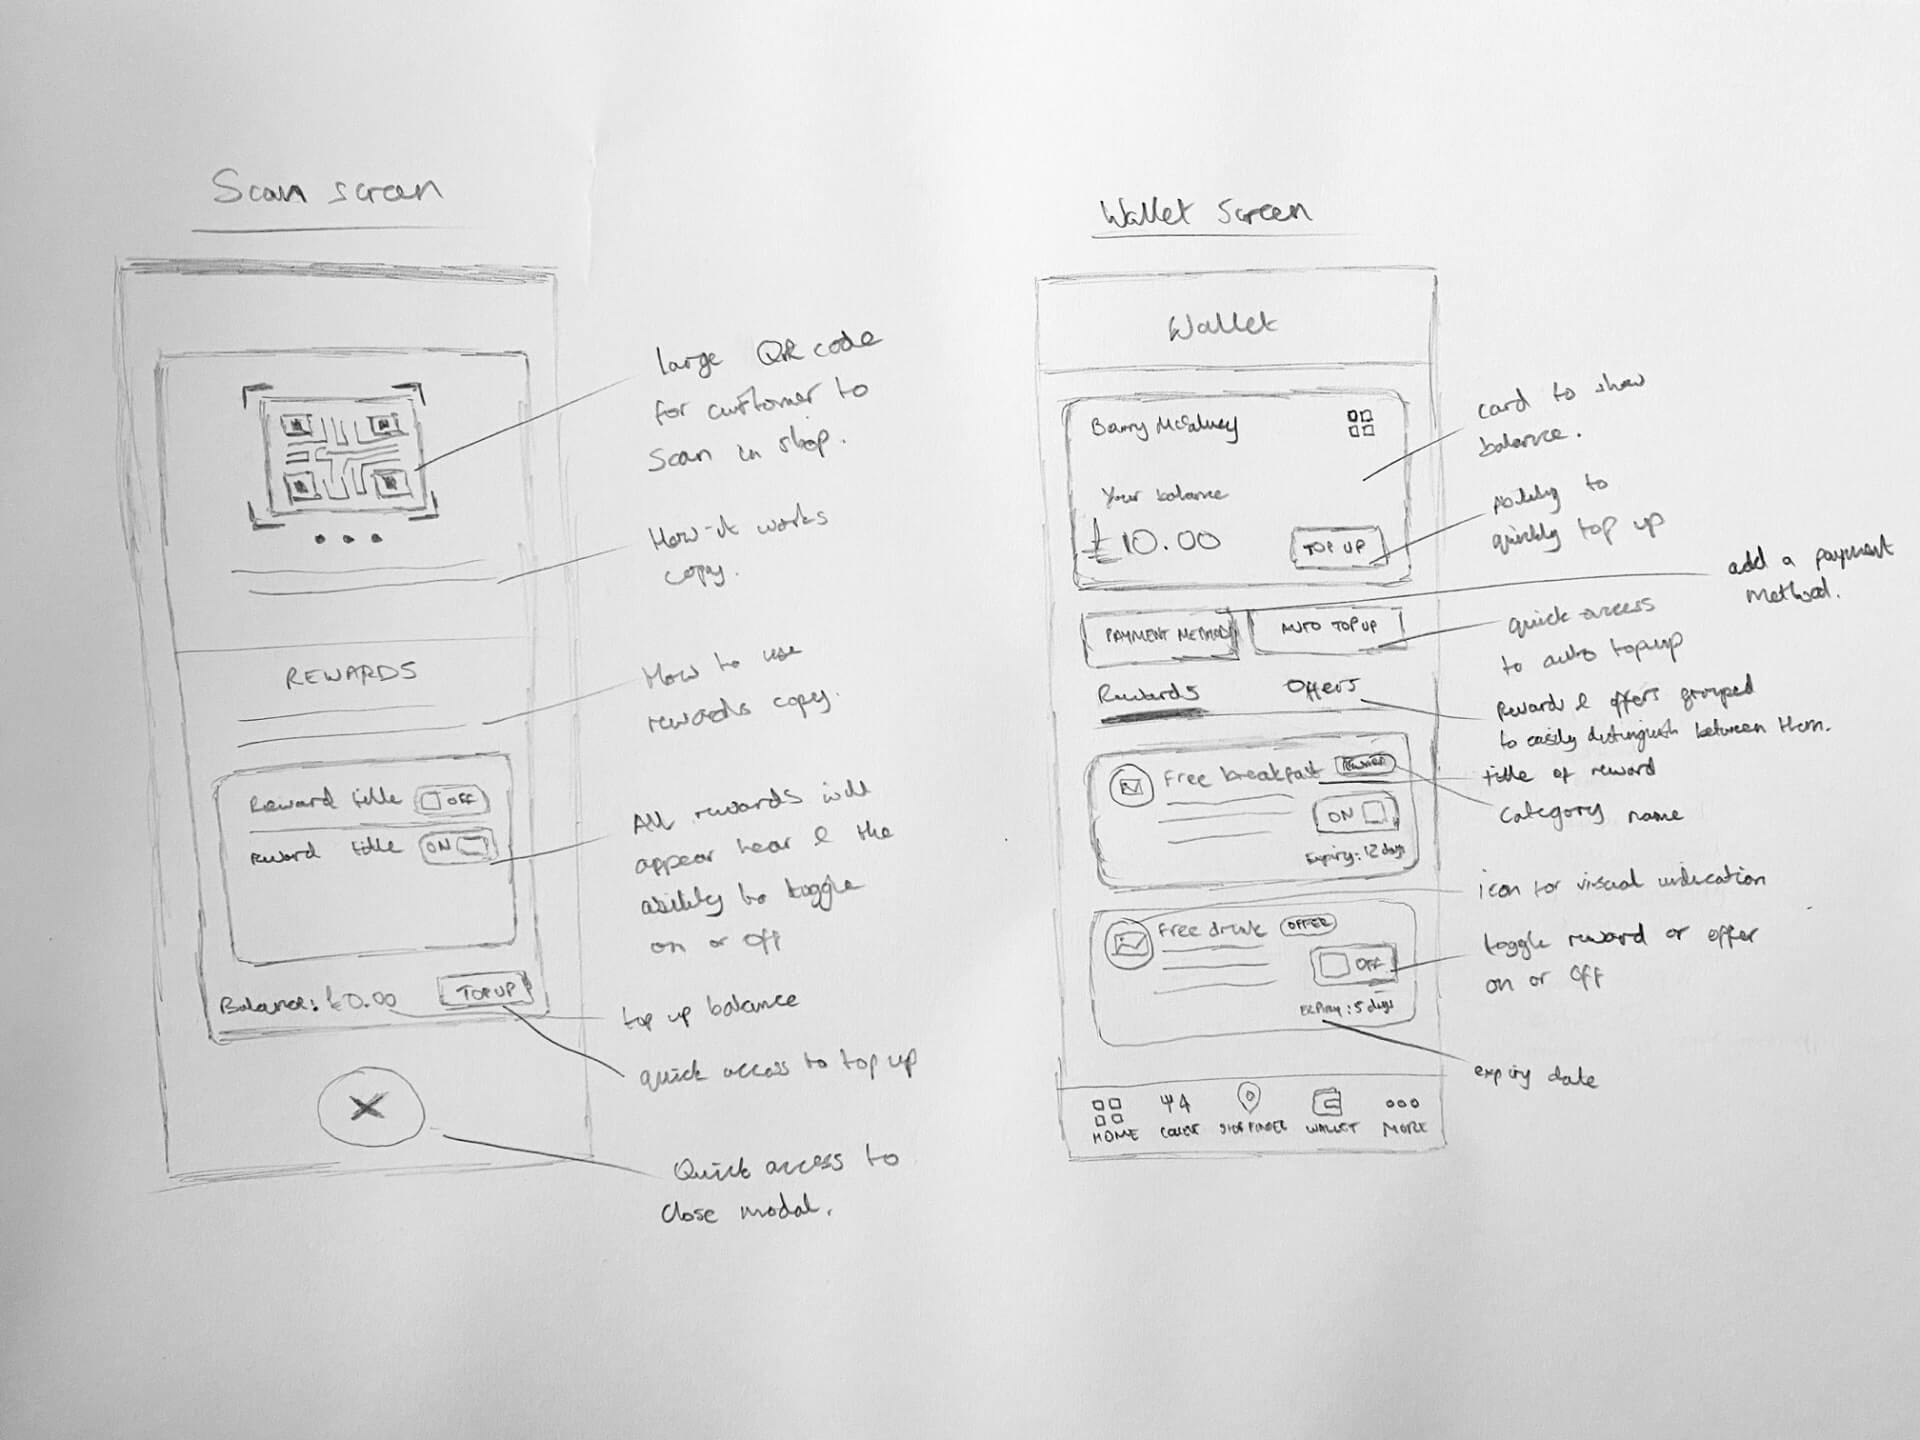 Scan screen
large QR code
for customer to
scan in shop.
How-it works
copy.
REWARDS
How to use
rewards copy.
Reward title OFF
Reward title ON
All rewards will
appear hear & the
ability to toggle
on or off
Balance: £0.00 TOP UP
top up balance
quick access to top up
X
Quick access to
close modal.
Wallet screen
Wallet
Barry
Your balance
£10.00 TOP UP
card to show
balance.
Ability to
quickly top up
add a payment
method.
PAYMENT METHOD AUTO TOP UP
quick access
to auto topup
Rewards Offers
Reward & offers grouped
to easily distinguish between them.
Free breakfast
ON
Expiry: 12 days
title of reward
category name
icon for visual indication
Free drink OFFER
OFF
Expiry: 5 days
toggle reward or offer
on or off
expiry date
HOME WALLET MORE